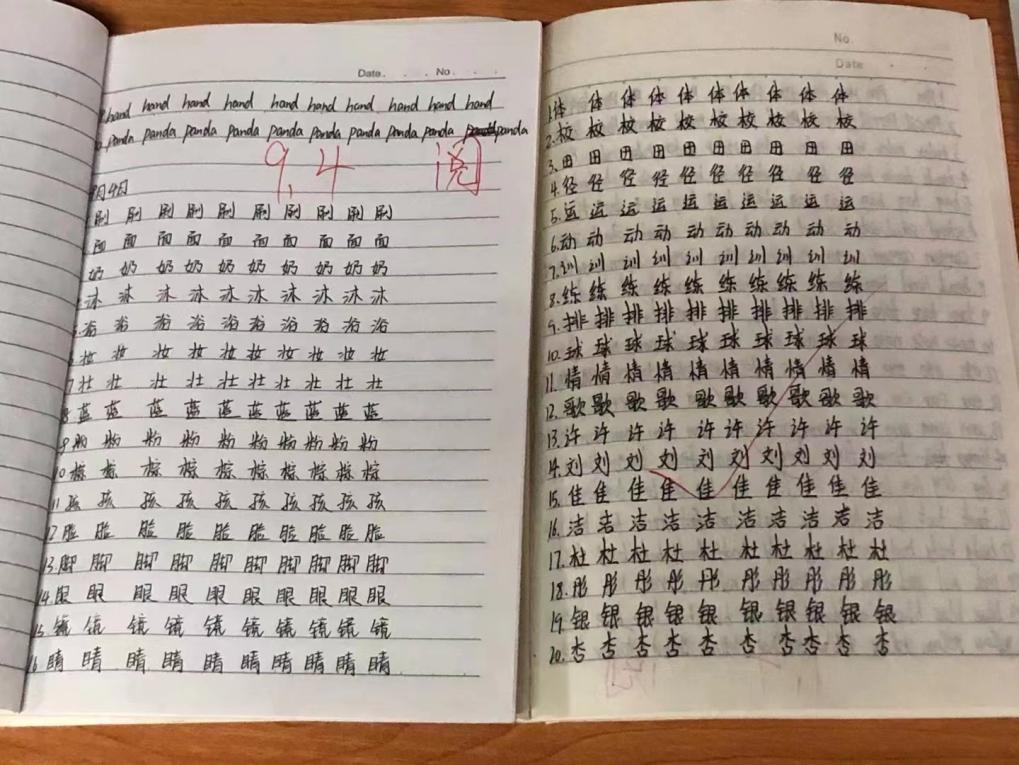 Date. . . No. . . .
hand hand hand hand hand hand hand hand hand hand
panda panda panda panda panda panda panda panda panda panda
9.4 阅
月9日
刷 刷 刷 刷 刷 刷 刷 刷 刷 刷
面 面 面 面 面 面 面 面 面 面
奶 奶 奶 奶 奶 奶 奶 奶 奶 奶
沐 沐 沐 沐 沐 沐 沐 沐 沐 沐
浴 浴 浴 浴 浴 浴 浴 浴 浴 浴
妆 妆 妆 妆 妆 妆 妆 妆 妆 妆
7 壮 壮 壮 壮 壮 壮 壮 壮 壮 壮
8 蓝 蓝 蓝 蓝 蓝 蓝 蓝 蓝 蓝 蓝
9 粉 粉 粉 粉 粉 粉 粉 粉 粉 粉
10 棕 棕 棕 棕 棕 棕 棕 棕 棕 棕
11 孩 孩 孩 孩 孩 孩 孩 孩 孩 孩
12 脸 脸 脸 脸 脸 脸 脸 脸 脸 脸
13. 脚 脚 脚 脚 脚 脚 脚 脚 脚 脚
14. 眼 眼 眼 眼 眼 眼 眼 眼 眼 眼
15 镜 镜 镜 镜 镜 镜 镜 镜 镜 镜
16 睛 睛 睛 睛 睛 睛 睛 睛 睛 睛
No.
Date
1. 体 体 体 体 体 体 体 体 体 体
2. 校 校 校 校 校 校 校 校 校 校
3. 田 田 田 田 田 田 田 田 田 田
4. 径 径 径 径 径 径 径 径 径 径
5. 运 运 运 运 运 运 运 运 运 运
6. 动 动 动 动 动 动 动 动 动 动
7. 训 训 训 训 训 训 训 训 训 训
8. 练 练 练 练 练 练 练 练 练 练
9. 排 排 排 排 排 排 排 排 排 排
10. 球 球 球 球 球 球 球 球 球 球
11. 情 情 情 情 情 情 情 情 情 情
12. 歌 歌 歌 歌 歌 歌 歌 歌 歌 歌
13. 许 许 许 许 许 许 许 许 许 许
14. 刘 刘 刘 刘 刘 刘 刘 刘 刘 刘
15. 佳 佳 佳 佳 佳 佳 佳 佳 佳 佳
16. 洁 洁 洁 洁 洁 洁 洁 洁 洁 洁
17. 杜 杜 杜 杜 杜 杜 杜 杜 杜 杜
18. 彤 彤 彤 彤 彤 彤 彤 彤 彤 彤
19. 银 银 银 银 银 银 银 银 银 银
20. 杏 杏 杏 杏 杏 杏 杏 杏 杏 杏